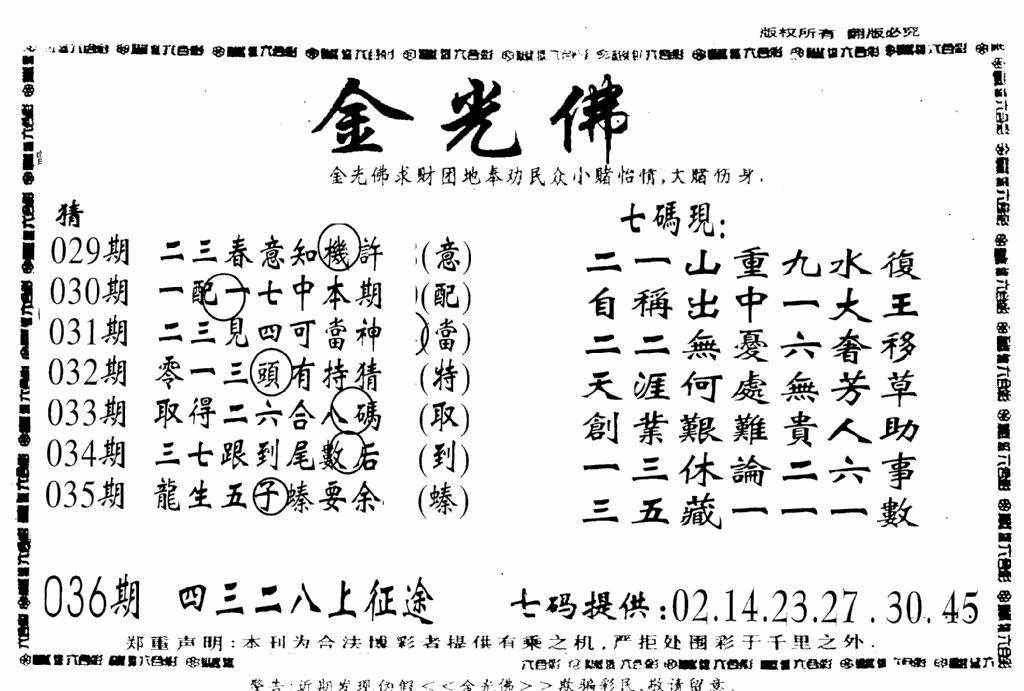 版权所有 翻版必究
金光佛
金光佛求财团地奉劝民众小赌怡情,大赌伤身.
猜
029期 二三春意知機許 (意)
030期 一配一七中本期 (配)
031期 二三見四可當神 (當)
032期 零一三頭有持猜 (特)
033期 取得二六合人碼 (取)
034期 三七跟到尾數后 (到)
035期 龍生五子螓要余 (螓)
七碼現:
二一山重九水復
自稱出中一大王
二二無憂六奢移
天涯何處無芳草
創業艱難貴人助
一三休論二六事
三五藏一一一數
036期 四三二八上征途
七码提供:02.14.23.27.30.45
郑重声明:本刊为合法博彩者提供有乘之机,严拒处围彩于千里之外.
警告:近期发现伪假<<金光佛>>欺骗彩民,敬请留意.